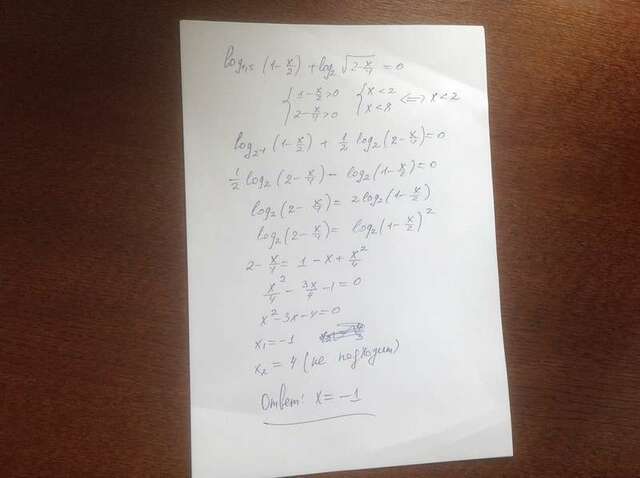 log₀,₅ (1 - x/2) + log₂ √(2 - x/4) = 0
{ 1 - x/2 > 0 { x < 2
{ 2 - x/4 > 0 { x < 8 <=> x < 2
log₂₋₁ (1 - x/2) + 1/2 log₂ (2 - x/4) = 0
1/2 log₂ (2 - x/4) - log₂ (1 - x/2) = 0
log₂ (2 - x/4) = 2 log₂ (1 - x/2)
log₂ (2 - x/4) = log₂ (1 - x/2)²
2 - x/4 = 1 - x + x²/4
x²/4 - 3x/4 - 1 = 0
x² - 3x - 4 = 0
x₁ = -1
x₂ = 4 (не подходит)
Ответ: x = -1